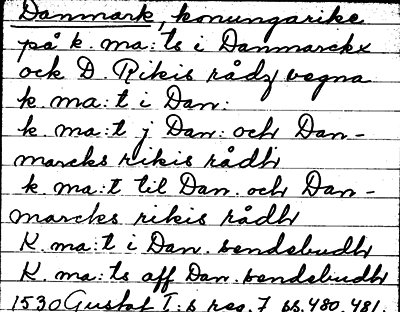 Danmark, konungarike
på k. ma:ts i Danmarckx
och D. Rikis rådz vegna
k. ma:t i Dan:
k. ma:t j Dan: och Dan-
marcks rikis rådh
k. ma:t til Dan. och Dan-
marcks rikis rådh
K. ma:t i Dan. sendebudh
K. ma:ts aff Dan. sendebudh
1530 Gustaf I:s reg. 7 ss. 480, 481.